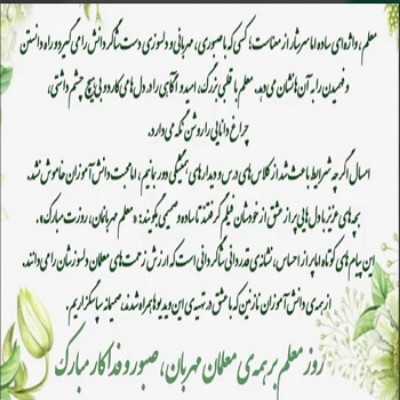 معلم، واژه‌ای ساده اما سرشار از معناست؛ کسی که با صبوری، مهربانی و دلسوزی دست شاگردانش را می‌گیرد و راه دانستن
و فهمیدن را به آن‌ها نشان می‌دهد. معلم با قلبی بزرگ، امید و آگاهی را در دل‌ها می‌کارد و بی‌هیچ چشم‌داشتی،
چراغ دانایی را روشن نگه می‌دارد.
امسال اگرچه شرایط باعث شد از کلاس‌های درس و دیدارهای همیشگی دور بمانیم، اما محبت دانش‌آموزان خاموش نشد.
بچه‌های عزیز با دل‌هایی پر از عشق از خودشان فیلم گرفتند تا ساده و صمیمی بگویند: «معلم مهربانمان، روزت مبارک».
این پیام‌های کوتاه اما پر از احساس، نشانه‌ی قدردانی شاگردانی است که ارزش زحمت‌های معلمان دلسوزشان را می‌دانند.
از همه‌ی دانش‌آموزان نازنین که با عشق در تهیه‌ی این ویدیوها همراه شدند، صمیمانه سپاسگزاریم.
روز معلم بر همه‌ی معلمان مهربان، صبور و فداکار مبارک